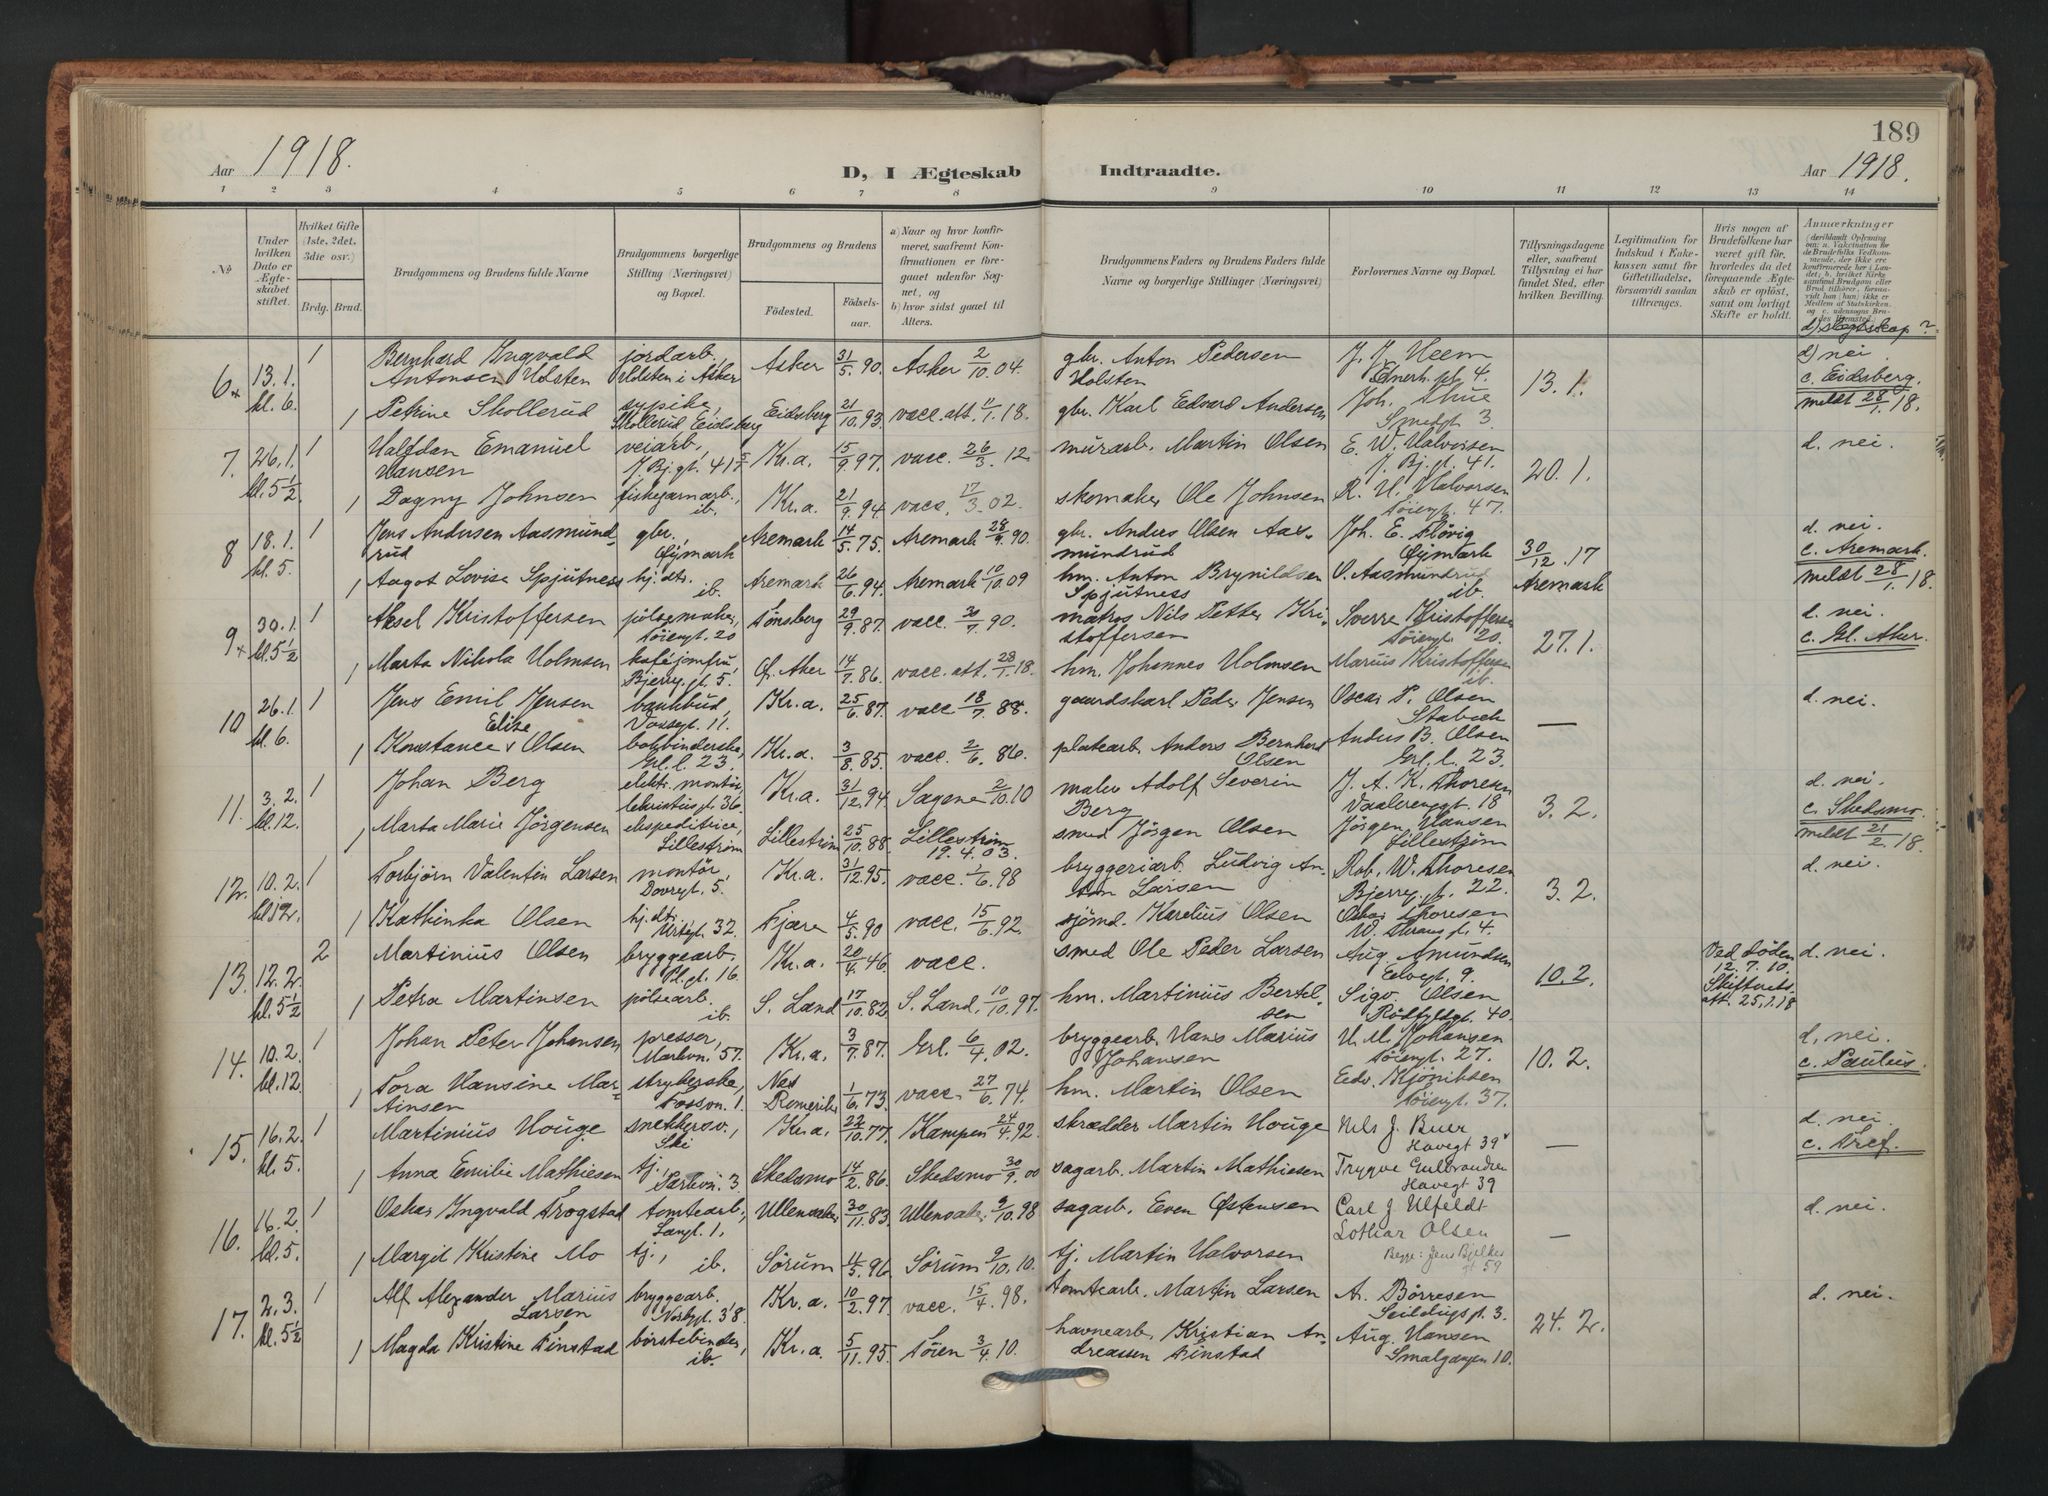 189
Aar 1918.
D, I Ægteskab Indtraadte.
Aar 1918.
1 2 3 4 5 6 7 8 9 10 11 12 13 14
No
Under hvilken Dato er Ægteskabet stiftet.
Hvilket Gifte (1ste, 2det, 3die osv.)
Brdg. Brud.
Brudgommens og Brudens fulde Navne
Brudgommens borgerlige Stilling (Næringsvei) og Bopæl.
Brudgommens og Brudens
Födested. Födselsaar.
a) Naar og hvor konfirmeret, saafremt Konfirmationen er foregaaet udenfor Sognet, og
b) hvor sidst gaaet til Alters.
Brudgommens Faders og Brudens Faders fulde Navne og borgerlige Stillinger (Næringsvei)
Forlovernes Navne og Bopæl.
Tillysningsdagene eller, saafremt Tillysning ei har fundet Sted, efter hvilken Bevilling.
Legitimation for Indskud i Enkekassen samt for Giftetilladelse, forsaavidt saadan tiltrænges.
Hvis nogen af Brudefolkene har været gift för, hvorledes da det foregaaende Ægteskab er oplöst, samt om lovligt Skifte er holdt.
Anmærkninger
d) slegtskap?
6 13.1. kl. 6. 1 Bernhard Ingvald Antonsen Holsten jordarb., Holsten i Asker Asker 31/5 90. Asker 2/10 04. gbr. Anton Pedersen Holsten J. J. Heem Ednerh. pl. 4. 13.1. d) nei. c. Eidsberg.
1 Petrine Skollerud sypike, Skollerud Eidsberg Eidsberg 21/10 93. vacc. att. 11/1 18. gbr. Karl Edvard Andersen Joh. Thue Smedgt 3. meldt 28/1 18.
7. 26.1. kl. 5½ 1 Halfdan Emanuel Hansen veiarb., J. Bj. gt. 41 Kr.a. 15/9 97. vacc. 26/3 12. murarb. Martin Olsen E. W. Halvorsen J. Bj. gt. 41. 20.1. d. nei.
1 Dagny Johnsen fiskegarnarb., ib. Kr.a. 21/9 94. vacc. 17/3 02. skomaker Ole Johnsen R. H. Halvorsen Töiengt. 47.
8 18.1. kl. 5. 1 Jens Andersen Aasmundrud gbr., Öymark Aremark 14/5 75. Aremark 28/9 90. gbr. Anders Olsen Aasmundrud Joh. E. Flövig Öymark 30/12 17 Aremark d. nei. c. Aremark.
1 Aagot Lovise Spjutness hj. dtr. ib. Aremark 26/6 94. Aremark 10/10 09 hm. Anton Brynildsen Spjutness O. Aasmundrud ib. meldt 28/1 18.
9 30.1. kl. 5½ 1 Aksel Kristoffersen pölsemaker, Töiengt. 20 Tönsberg 29/9 87. vacc. 30/7 90. matros Nils Petter Kristoffersen Sverre Kristoffersen Töiengt. 20. 27.1. d. nei. c. Gl. Aker.
1 Marta Nikola Holmsen kaféjomfru, Bjerreg. gt. 5. Ø. Aker 14/7 86. vacc. att. 28/1 18. hm. Johannes Holmsen Marius Kristoffersen ib.
10 26.1. kl. 6. 1 Jens Emil Jensen bankbud, Vossegt. 11. Kr.a. 25/6 87. vacc. 18/7 88. gaardskarl Peder Jensen Oscar P. Olsen Stabæk — d. nei.
1 Konstance Elise Olsen bokbinderske, Grl. l. 23. Kr.a. 3/8 85. vacc. 2/6 86. platearb. Anders Bernhard Olsen Anders B. Olsen Grl. l. 23.
11. 3.2. kl. 12. 1 Johan Berg elektr. montör, Kr.a. 31/12 94. Sagene 2/10 10 maler Adolf Severin Berg J. A. K. Thoresen Vaalerenggt 18 3.2. d. nei. c. Skedsmo.
1 Marta Marie Jörgensen ekspeditrice, Lilleström Lilleström 25/10 88. Lilleström 19.4.03. smed Jörgen Olsen Jörgen Hansen Lilleström meldt 21/2 18.
12. 10.2. kl. 12. 1 Torbjörn Valentin Larsen montör, Dovregt. 5. Kr.a. 31/12 95. vacc. 1/6 98 bryggeriarb. Ludvig Anton Larsen Rob. W. Thoresen Bjerreg. gt. 22. 3.2. d. nei.
1 Kathinka Olsen hj. dtr. Urtegt. 32. Fjære 4/5 90 vacc. 15/6 92. sjömd. Karelius Olsen Oskar Thoresen W. Thranes gt. 4.
13. 12.2. kl. 5½ 2 Martinius Olsen bryggearb. Pl. gt. 16. Kr.a. 20/4 46. vacc. smed Ole Peder Larsen Aug. Amundsen Eelvegt. 9. 10.2. Ved döden 12.7.10. Skifteret. att. 25.1.18 d. nei.
1 Petra Martinsen pölsearb. ib. S. Land 17/10 82 S. Land. 10/10 97. hm. Martinius Bertelsen Sigv. Olsen Rödfyldgt. 40.
14. 10.2. kl. 12 1 Johan Peter Johansen presser, Markvn. 57. Kr.a. 3/7 87. Grl. 6/4 02. bryggearb. Hans Marius Johansen H. M. Johansen Töiengt. 27. 10.2. d. nei. c. Paulus.
1 Tora Hansine Martinsen strykerske, Fossvn. 1. Nes Romerike 1/6 73. vacc. 27/6 74. hm. Martin Olsen Edv. Kjöniksen Töiengt. 37.
15. 16.2. kl. 5. 1 Martinius Houge snekkersv., Ski Kr.a. 22/10 77. Kampen 24/4 92. skrædder Martin Houge Nils J. Buer Havegt 39 — d. nei. c. Tref.
1 Anna Emilie Mathiesen tj., Parkvn. 3. Skedsmo 14/2 86. Skedsmo 30/9 00 sagarb. Martin Mathiesen Trygve Gulbrandsen Havegt 39
16. 16.2. kl. 5. 1 Oskar Ingvald Trogstad tomtearb., Langt. 1, Ullensaker 30/11 83. Ullensaker 9/10 98 sagarb. Even Östensen Carl J Ulfeldt — d. nei.
1 Margit Kristine Mo tj., ib. Sörum 11/5 96. Sörum 9/10 10. tj. Martin Halvorsen Lothar Olsen Begge: Jens Bjelkes gt 59
17. 2.3. kl. 5½ 1 Alf Alexander Marius Larsen bryggearb. Norbygt. 38. Kr.a. 10/2 97. vacc. 15/4 98. tomtearb. Martin Larsen A. Börresen Seildugs gt. 3. 24.2. d. nei.
1 Magda Kristine Finstad börstebinder, ib. Kr.a. 5/11 95. Töien 3/4 10. havnearb. Kristian Andreassen Finstad Aug. Hansen Smalgangen 10.